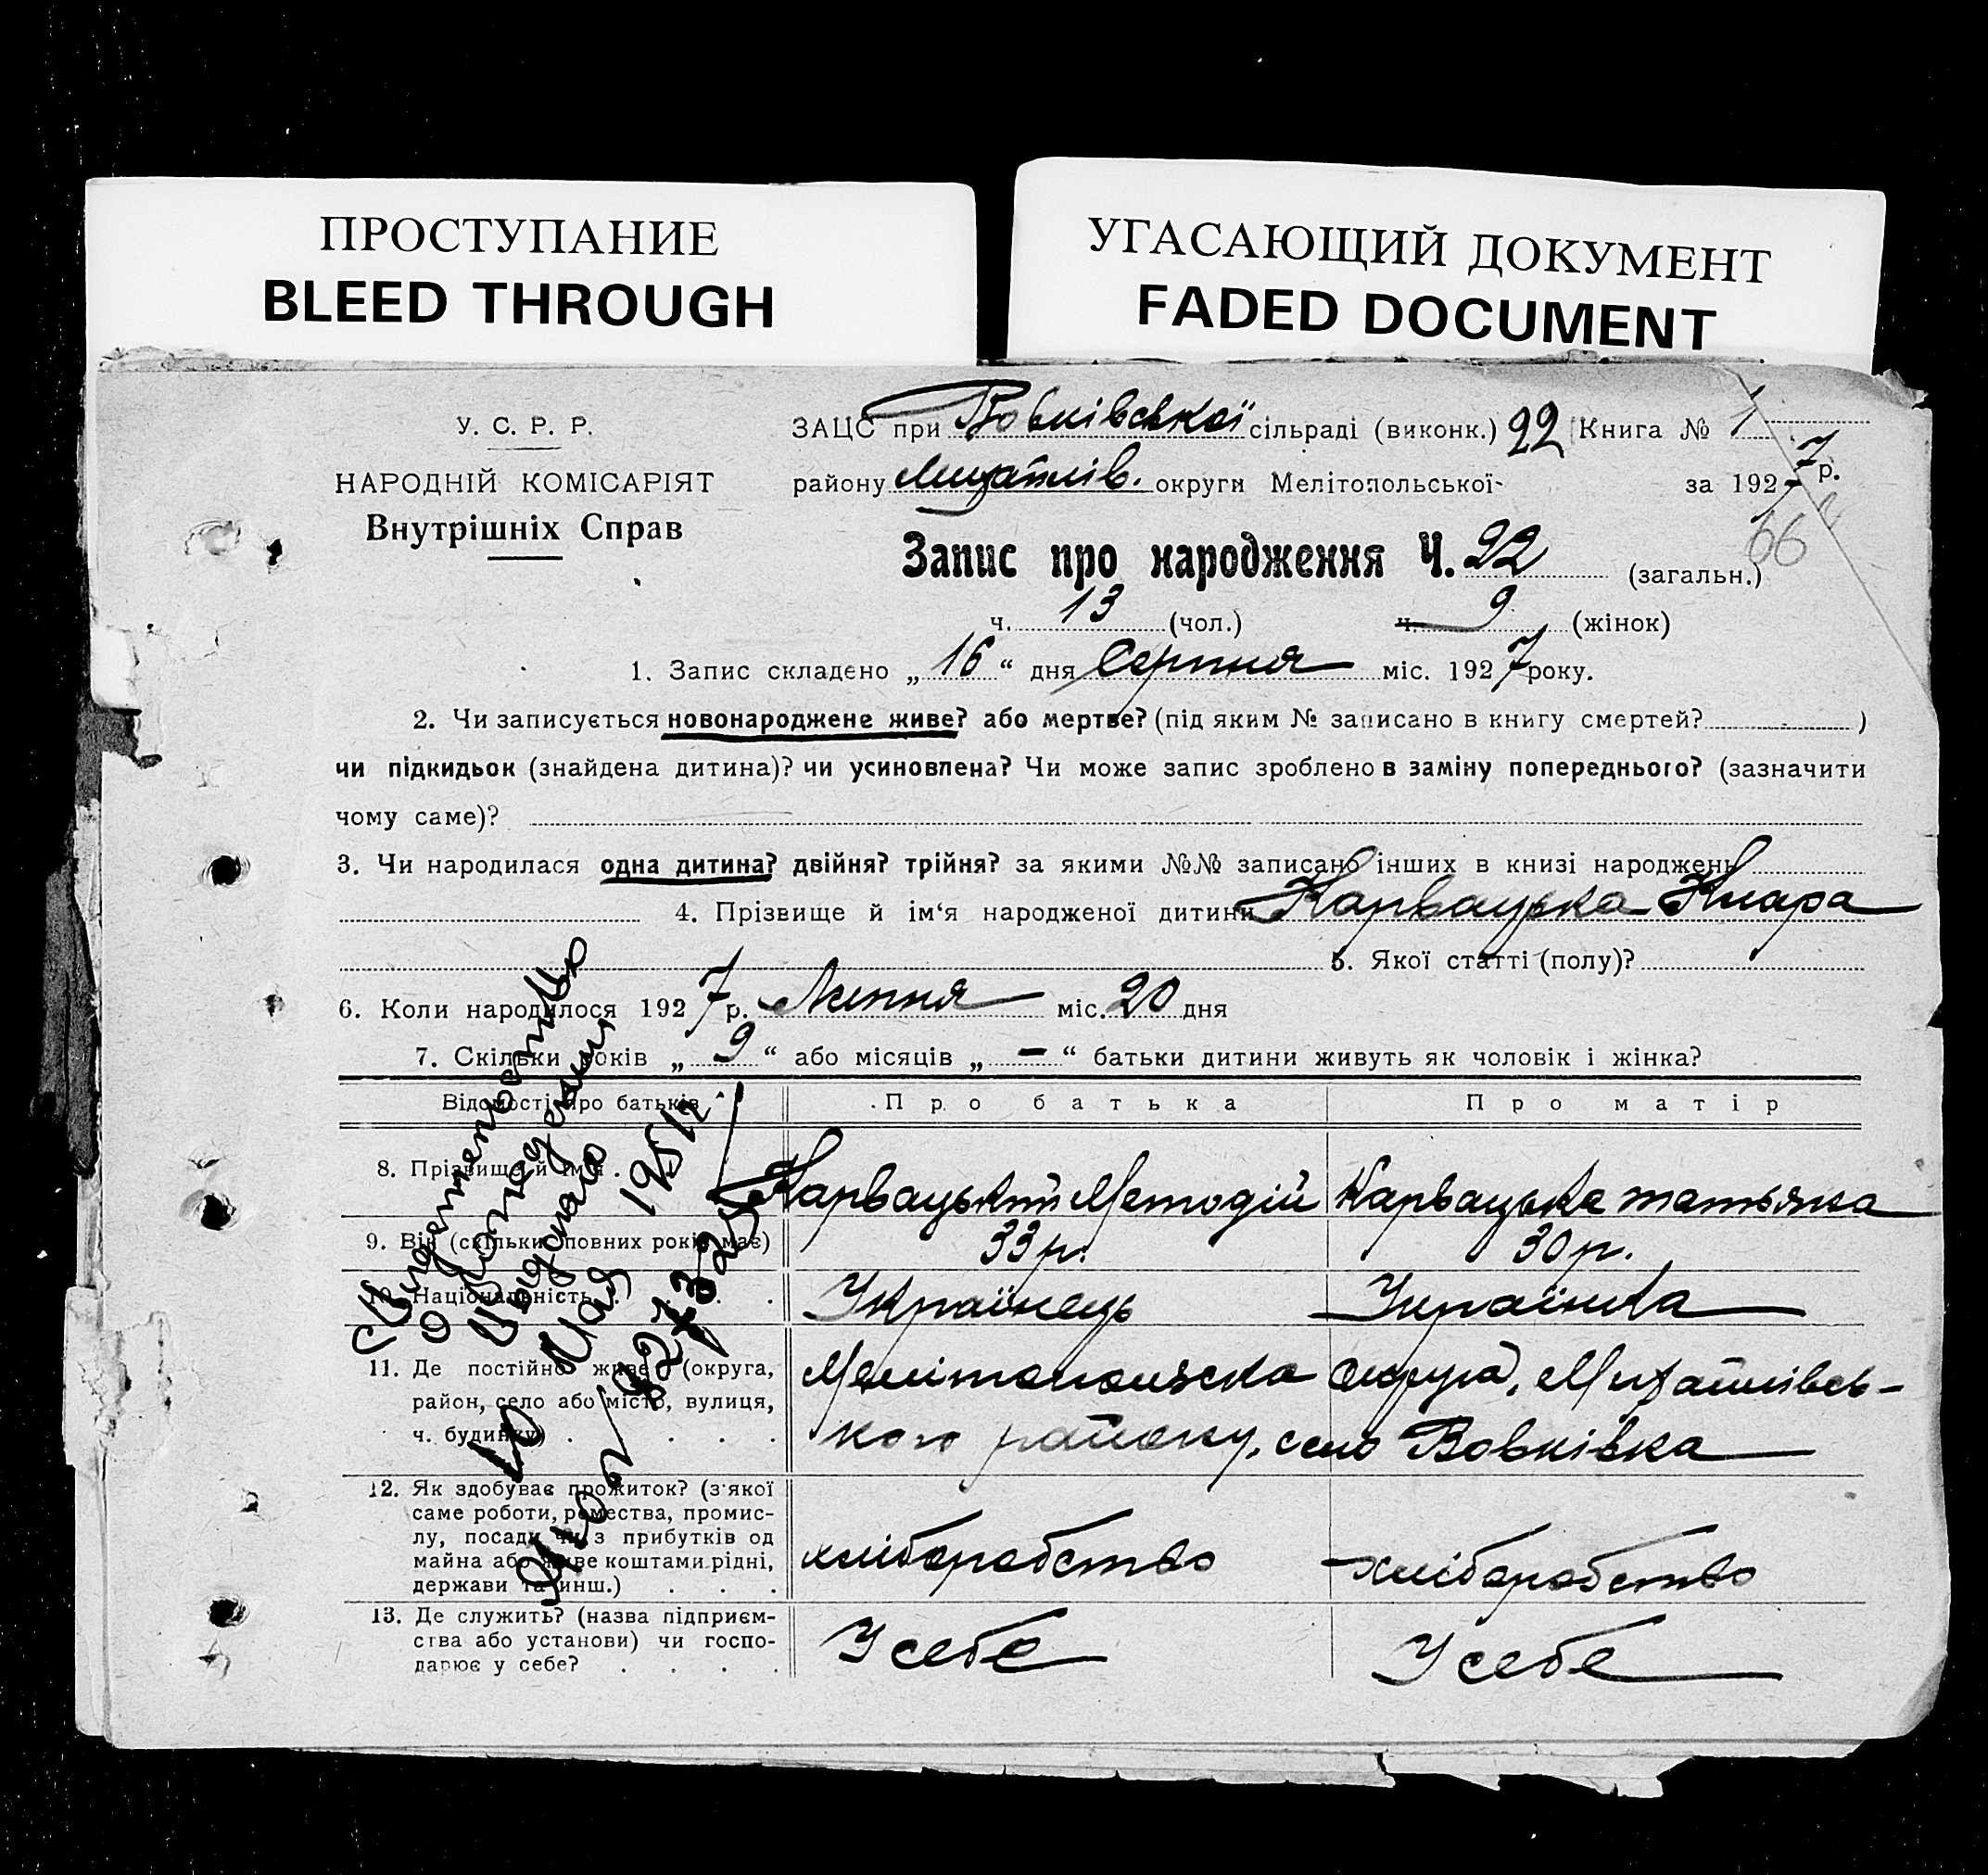 ПРОСТУПАНИЕ
BLEED THROUGH
УГАСАЮЩИЙ ДОКУМЕНТ
FADED DOCUMENT
У. С. Р. Р.
НАРОДНІЙ КОМІСАРІЯТ
Внутрішніх Справ
ЗАЦС при Вовківської сільраді (виконк.) 22 Книга № 1
району округи Мелітопольської за 1927 р.
66
Запис про народження Ч. 22 (загальн.)
ч. 13 (чол.) ч. 9 (жінок)
1. Запис складено „ 16 “ дня Серпня міс. 1927 року.
2. Чи записується новонароджене живе? або мертве? (під яким № записано в книгу смертей? )
чи підкидьок (знайдена дитина)? чи усиновлена? Чи може запис зроблено в заміну попереднього? (зазначити
чому саме)?
3. Чи народилася одна дитина? двійня? трійня? за якими №№ записано інших в книзі народжень
4. Прізвище й ім‘я народженої дитини Карвацька Клара
5. Якої статті (полу)?
6. Коли народилося 1927 р. Липня міс. 20 дня
7. Скільки років „ 9 “ або місяців „ — “ батьки дитини живуть як чоловік і жінка?
Відомості про батьків Про батька Про матір
8. Прізвище й ім'я . Карвацький Методій Карвацька татьяна
9. Вік (скільки повних років має) 33 р. 30 р.
10. Національність . . . . Українець Українка
11. Де постійно живе? (округа, Мелітопольска округа,
район, село або місто, вулиця,
ч. будинку) . . . . кого району, село Вовківка
12. Як здобуває прожиток? (з'якої
саме роботи, ремества, промис-
лу, посади чи з прибутків од
майна або живе коштами рідні, хліборобство хліборобство
держави та инш.) . . .
13. Де служить? (назва підприєм-
ства або установи) чи госпо- У себе У себе
дарює у себе? . . . .
Свидетельство
о рождении
Выдано
10 мая 1951 г.